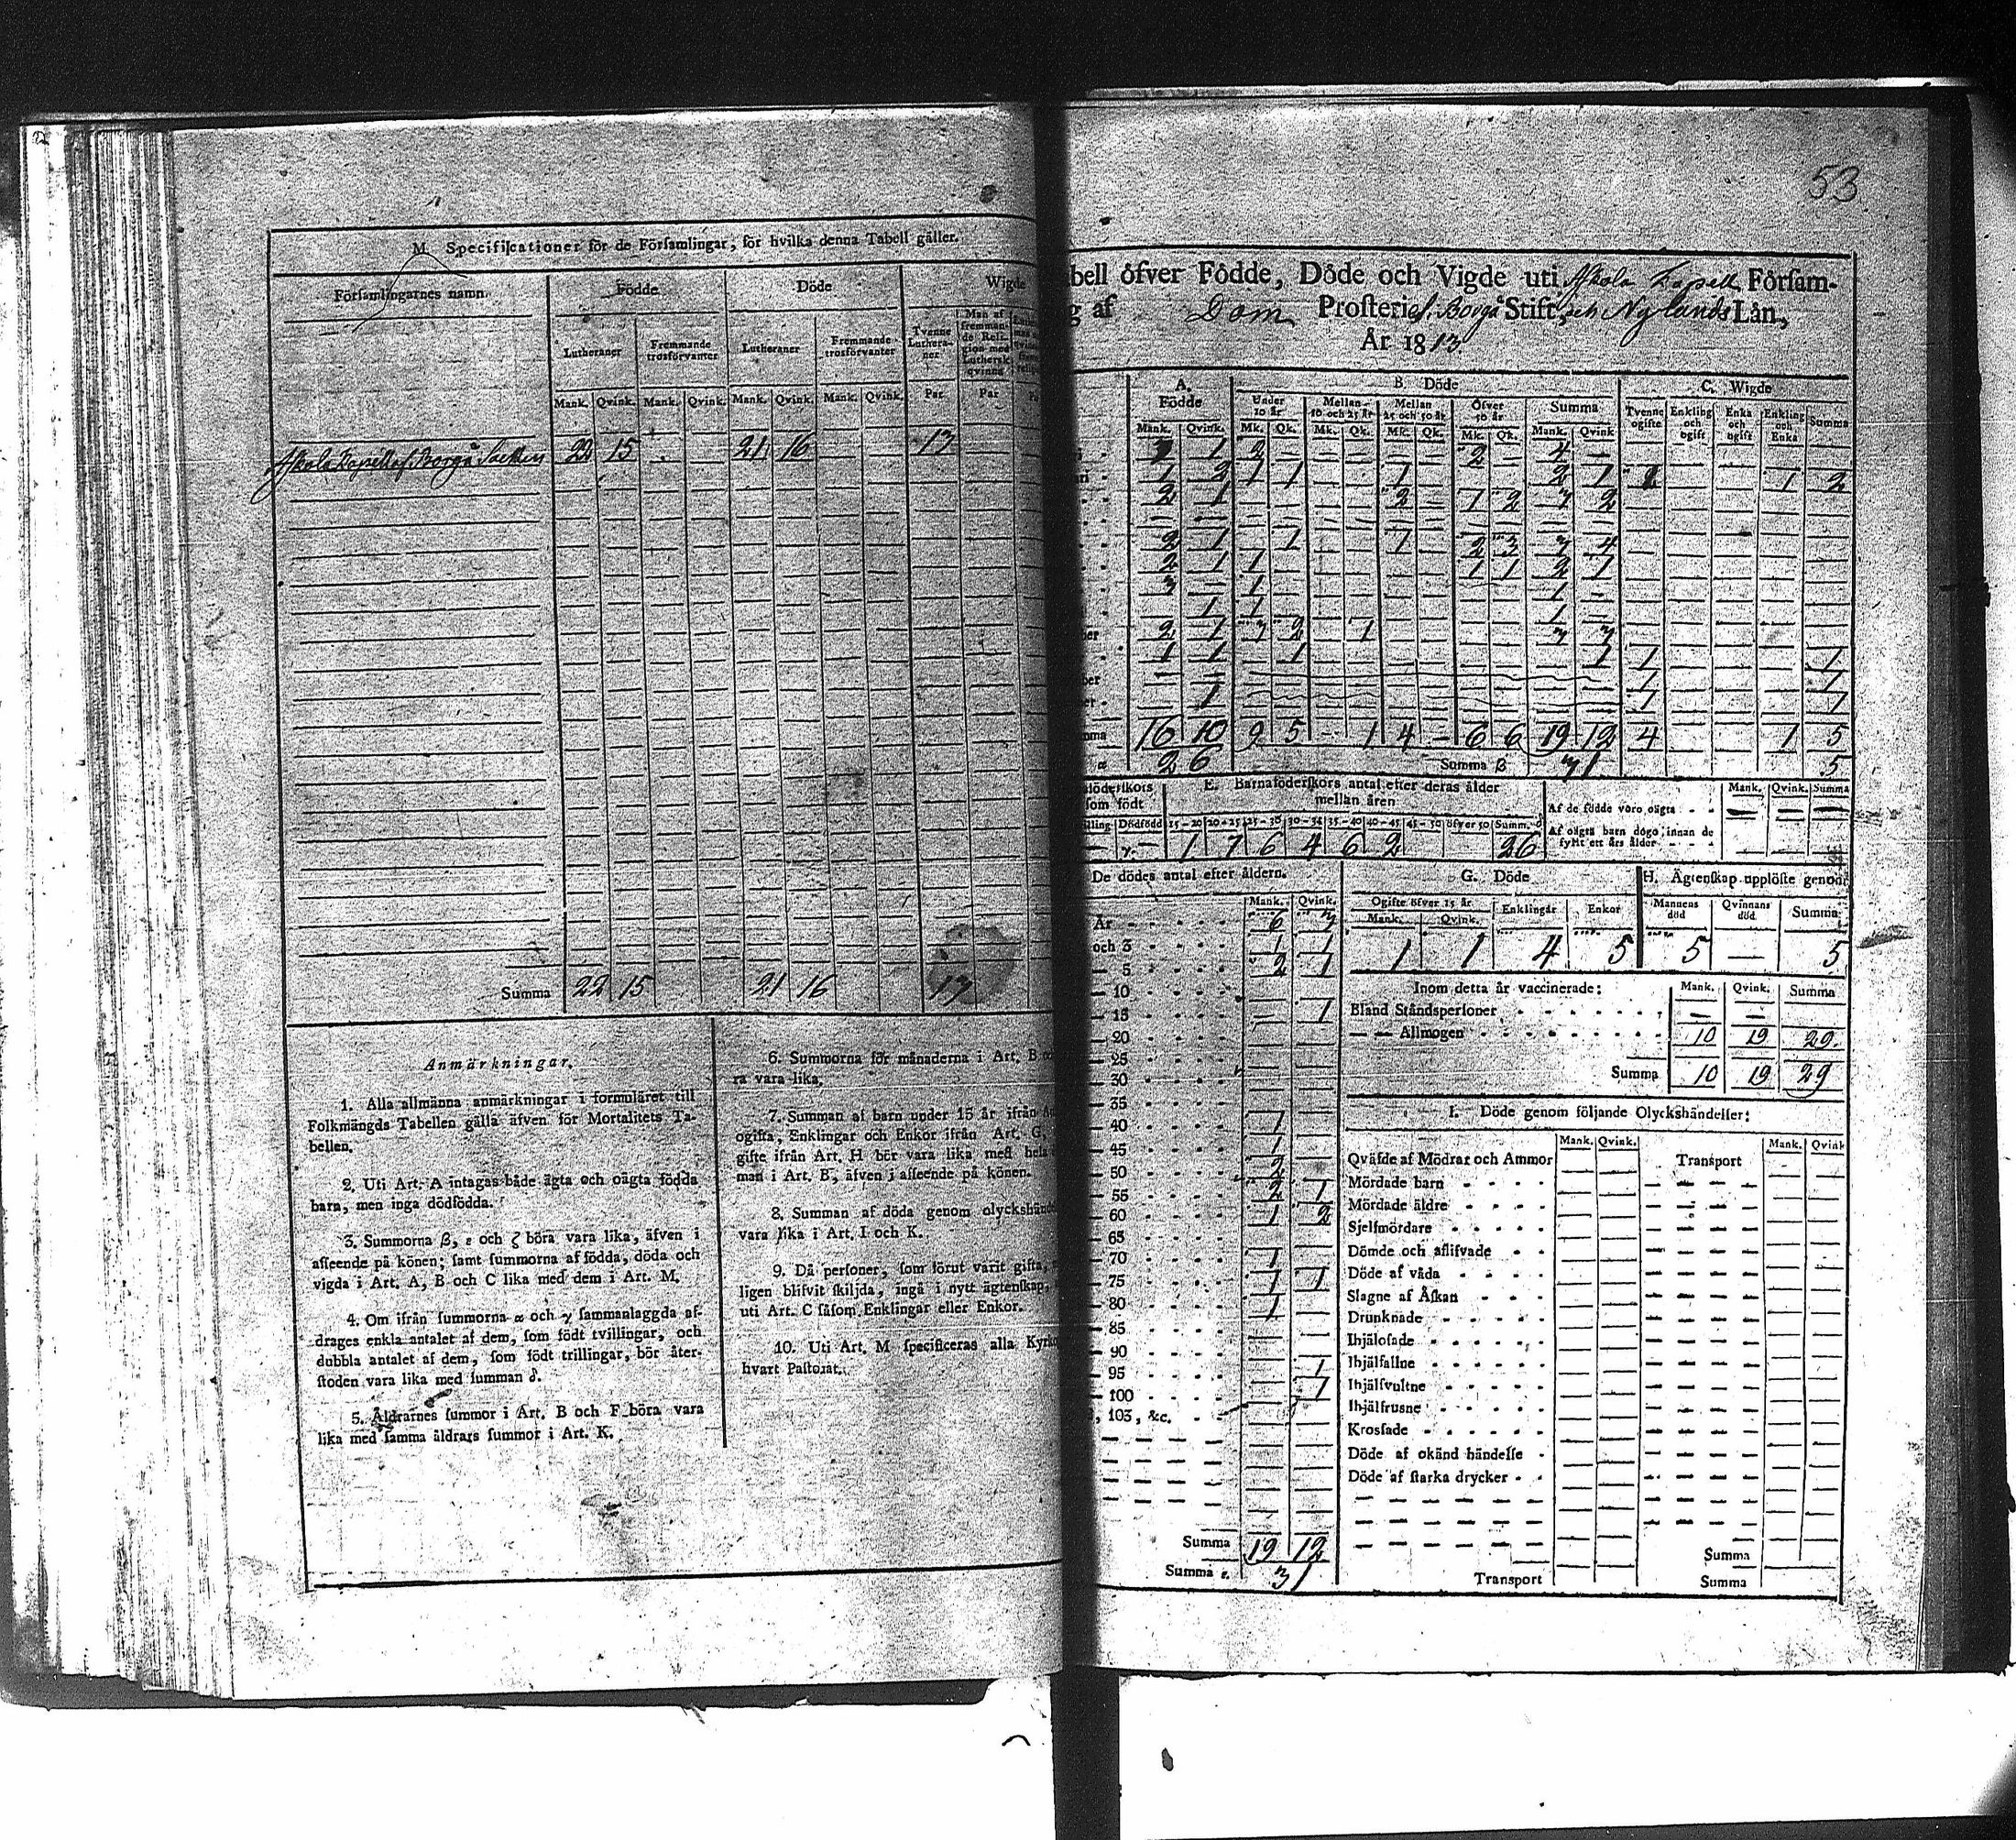 53
M. Specificationer för de Församlingar, för hvilka denna Tabell gäller.
Församlingarnes namn.
Födde
Döde
Wigde
Lutheraner
Fremmande trosförvanter
Lutheraner
Fremmande trosförvanter
Tvenne Lutheraner
Man af fremmande Religion med Luthersk qvinna
Mank. Qvink. Mank. Qvink. Mank. Qvink. Mank. Qvink. Par Par
Askola Kapell af Borgå Sochn 22 15 21 16 13
Summa 22 15 21 16 13
Anmärkningar.
1. Alla allmänna anmärkningar i formuläret till
Folkmängds Tabellen gälla äfven för Mortalitets Ta-
bellen.
2. Uti Art. A intagas både ägta och oägta födda
barn, men inga dödfödda.
3. Summorna β, ε och ζ böra vara lika, äfven i
afseende på könen; samt summorna af födda, döda och
vigda i Art. A, B och C lika med dem i Art. M.
4. Om ifrån summorna α och γ sammanlaggda af-
drages enkla antalet af dem, som födt tvillingar, och
dubbla antalet af dem, som födt trillingar, bör åter-
stoden vara lika med summan δ.
5. Åldrarnes summor i Art. B och F böra vara
lika med samma åldrars summor i Art. K.
6. Summorna för månaderna i Art. B
ra vara lika.
7. Summan af barn under 15 år ifrån
ogifta, Enklingar och Enkor ifrån Art. G,
gifte ifrån Art. H bör vara lika med hela
man i Art. B, äfven i afseende på könen.
8. Summan af döda genom olyckshände
vara lika i Art. I och K.
9. Då personer, som förut varit gifta,
ligen blifvit skiljda, ingå i nytt ägtenskap,
uti Art. C såsom Enklingar eller Enkor.
10. Uti Art. M specificeras alla Kyrko
hvart Pastorat.
bell öfver Födde, Döde och Vigde uti Askola Kapell Försam-
g af Dom Prosteri af Borgå Stift, och Nylands Län,
År 1813.
A. Födde
B Döde
C. Wigde
Under 10 år
Mellan 10 och 25 år
Mellan 25 och 50 år
Öfver 50 år
Summa
Tvenne ogifte
Enkling och ogift
Enka och ogift
Enkling och Enka
Summa
Mank. Qvink. Mk. Qk. Mk. Qk. Mk. Qk. Mk. Qk. Mank. Qvink
3 1 2 — — — — — 2 — 4 —
1 2 1 1 — — 1 — — — 2 1 1 2
2 1 — — — — 2 — 1 2 3 2
2 1 — 1 — — 1 — 2 3 3 4
2 1 1 — — — — — 1 1 2 1
3 — 1 — 1 —
— 1 1 — 1 —
ber 2 1 3 2 — 1 3 3
1 1 — 1 — 1 1 1
ber 1 1
1 1 1
mma 16 10 9 5 — 1 4 — 6 6 19 12 4 1 5
α 26 Summa β 31 5
föderskors
som födt
illing Dödfödd
γ. —
E. Barnaföderskors antal efter deras ålder
mellan åren
15-20 20-25 25-30 30-35 35-40 40-45 45-50 öfver 50 Summa δ
1 7 6 4 6 2 26
Mank. Qvink. Summa
Af de födde voro oägta — — —
Af oägta barn dogo, innan de
fyllt ett års ålder — — —
De dödes antal efter åldern.
Mank. Qvink.
År 6 3
och 3 1 1
5 2 1
10
15 — 1
20
25
30
35
40 1
45 1
50 2
55 2 1
60 1 2
65
70 1
75 1 1
80 1
85
90
95 1
100 1
, 103, &c.
Summa 19 12
Summa ε. 31
G. Döde
Ogifte öfver 15 år
Mank. Qvink.
Enklingar
Enkor
1 1 4 5
H. Ägtenskap upplöste genom
Mannens död
Qvinnans död.
Summa
5 — 5
Inom detta år vaccinerade: Mank. Qvink. Summa
Bland Ståndspersoner — —
— — Allmogen 10 19 29.
Summa 10 19 29
I. Döde genom följande Olyckshändelser:
Mank. Qvink. Mank. Qvink
Qväfde af Mödrar och Ammor Transport
Mördade barn
Mördade äldre
Sjelfmördare
Dömde och aflifvade
Döde af våda
Slagne af Åskan
Drunknade
Ihjälosade
Ihjälfallne
Ihjälsvultne
Ihjälfrusne
Krossade
Döde af okänd händelse
Döde af starka drycker
Summa
Transport Summa